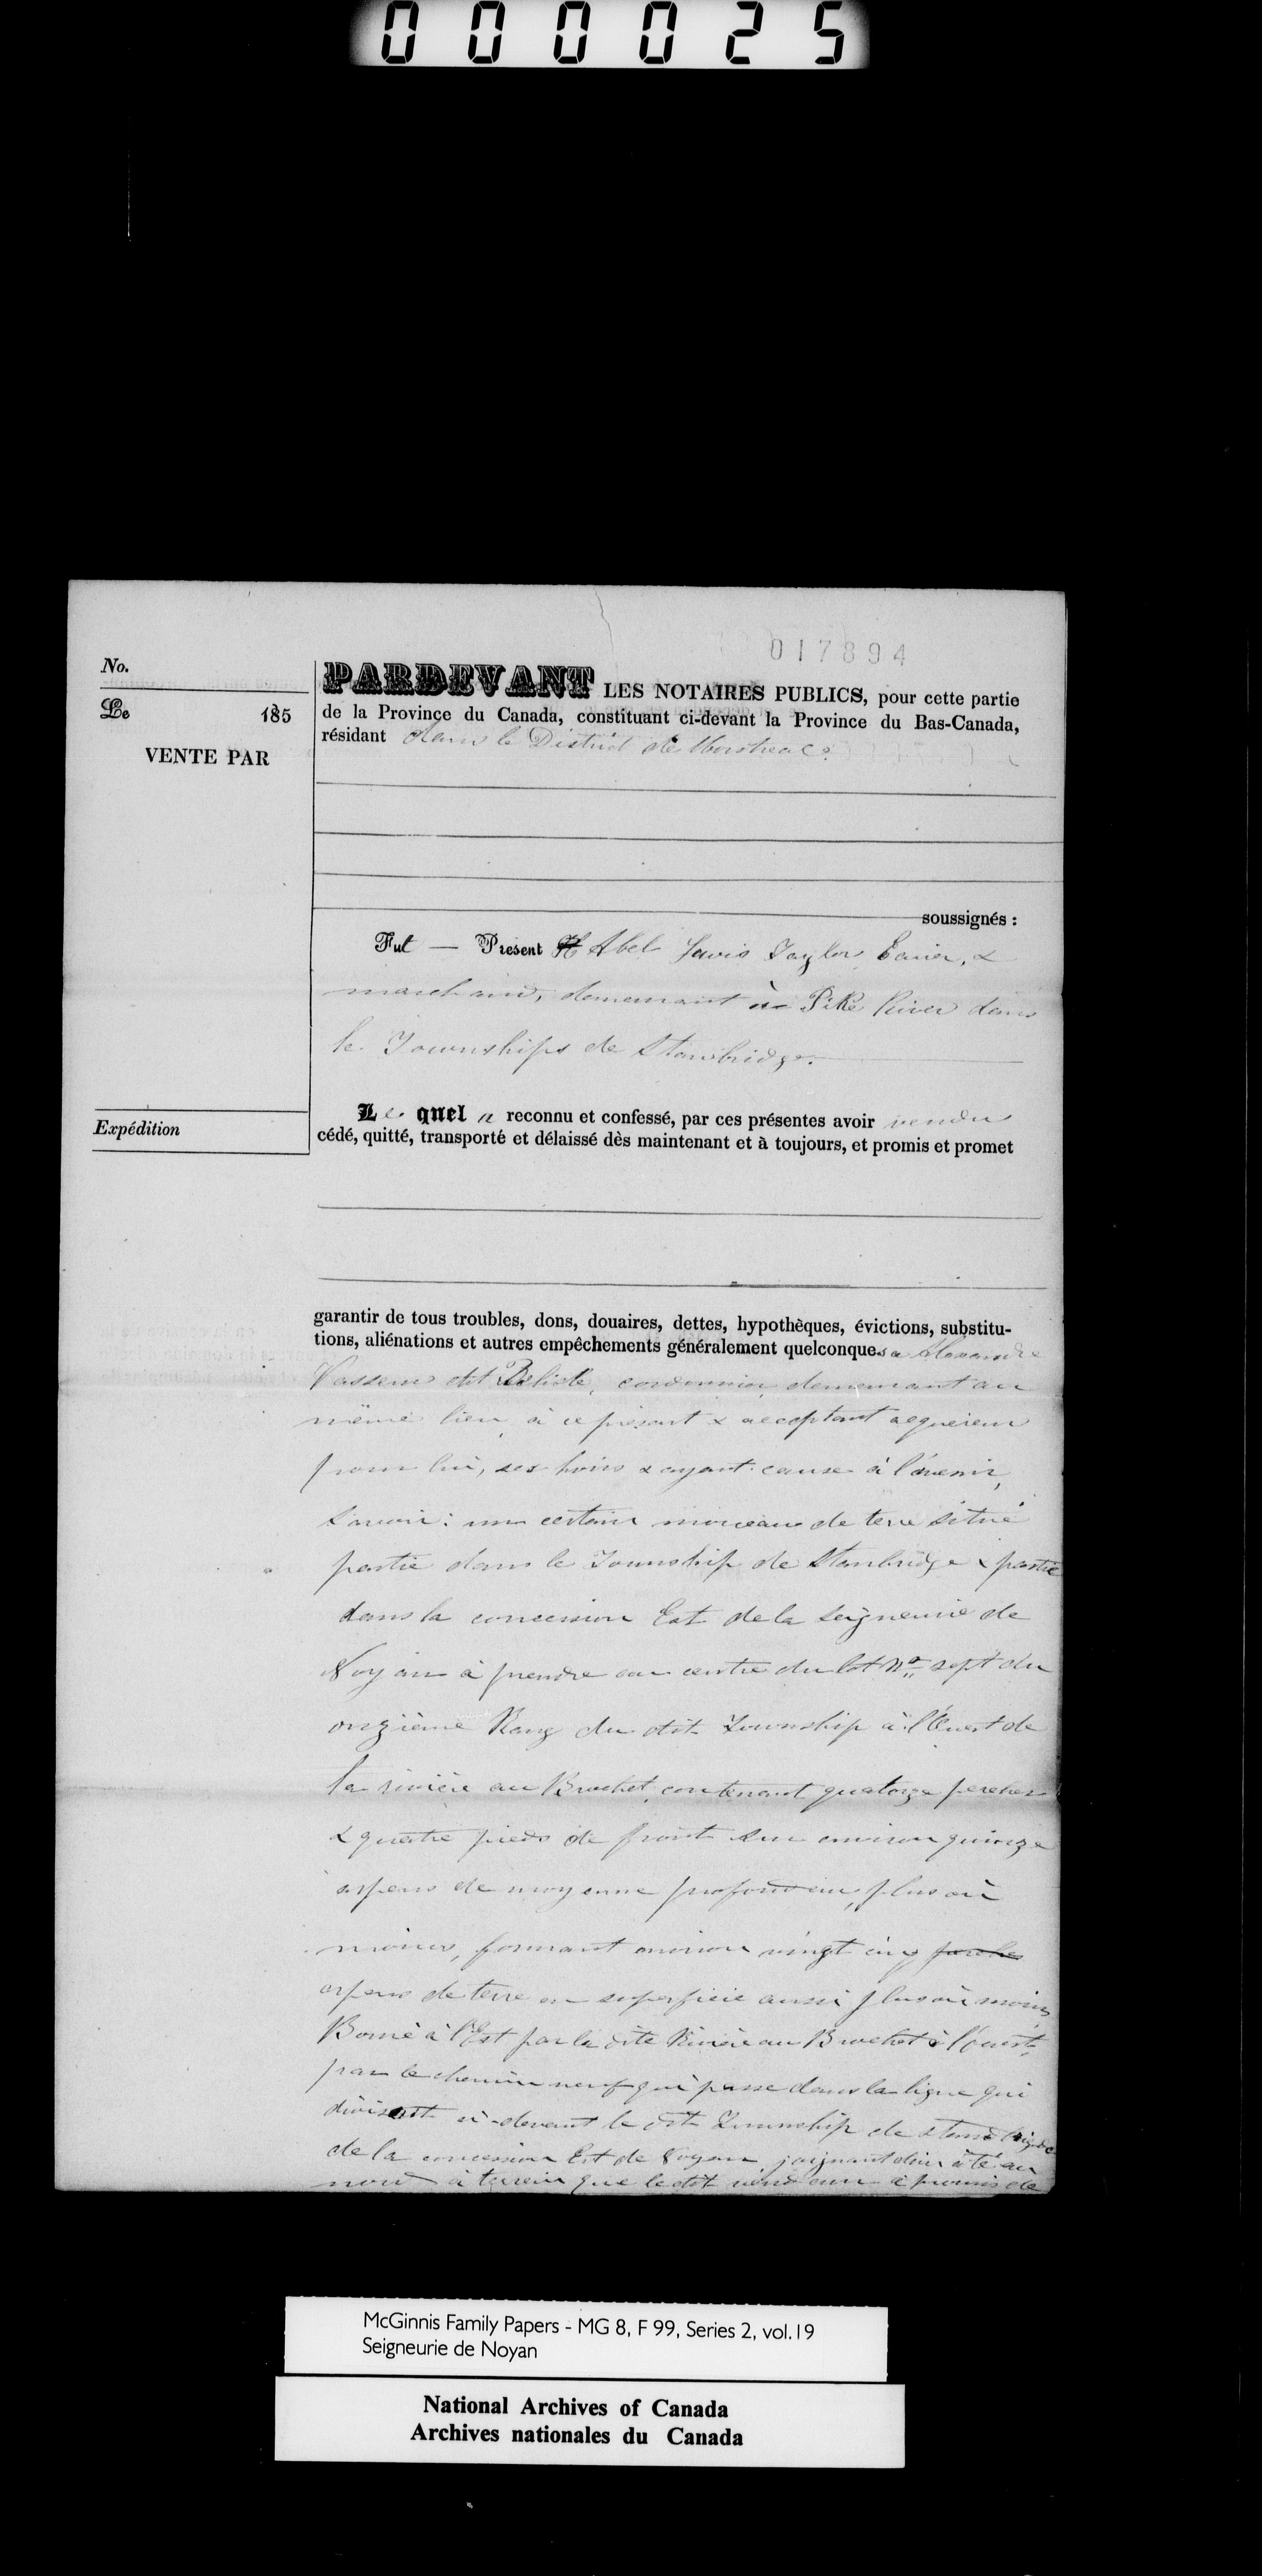 000025
017894
No.
Le 185
VENTE PAR
Expédition
PARDEVANT LES NOTAIRES PUBLICS, pour cette partie
de la Province du Canada, constituant ci-devant la Province du Bas-Canada,
résidant dans le District de Montreal.
soussignés :
Fut — Présent Abel Taylor Ecuier, &
marchand, demeurant à Pike River dans
le Townships de Stanbridge.
Lequel a reconnu et confessé, par ces présentes avoir vendu
cédé, quitté, transporté et délaissé dès maintenant et à toujours, et promis et promet
garantir de tous troubles, dons, douaires, dettes, hypothèques, évictions, substitu-
tions, aliénations et autres empêchements généralement quelconques a Alexandre
Vasseur dit Belisle, cordonnier, demeurant au
même lieu, à ce présent & acceptant acquereur
pour lui, ses hoirs & ayant cause à l'avenir,
Savoir : un certain morceau de terre situé
partie dans le Township de Stanbridge & partie
dans la concession Est de la Seigneurie de
Noyan à prendre au centre du lot No. sept du
onzième Rang du dit Township à l'Ouest de
la rivière au Brochet, contenant quatorze perches
& quatre pieds de front sur environ quinze
arpens de moyenne profondeur, plus ou
moins, formant environ vingt cinq perches
arpens de terre en superficie aussi plus ou moins
Borné à l'Est par la dite Rivière au Brochet à l'ouest,
par le chemin neuf qui passe dans la ligne qui
divisait ci-devant le dit Township de Stanbridge
de la concession Est de Noyan, joignant d'un côté au
nord à terrein que le dit vendeur a promis de
McGinnis Family Papers - MG 8, F 99, Series 2, vol.19
Seigneurie de Noyan
National Archives of Canada
Archives nationales du Canada